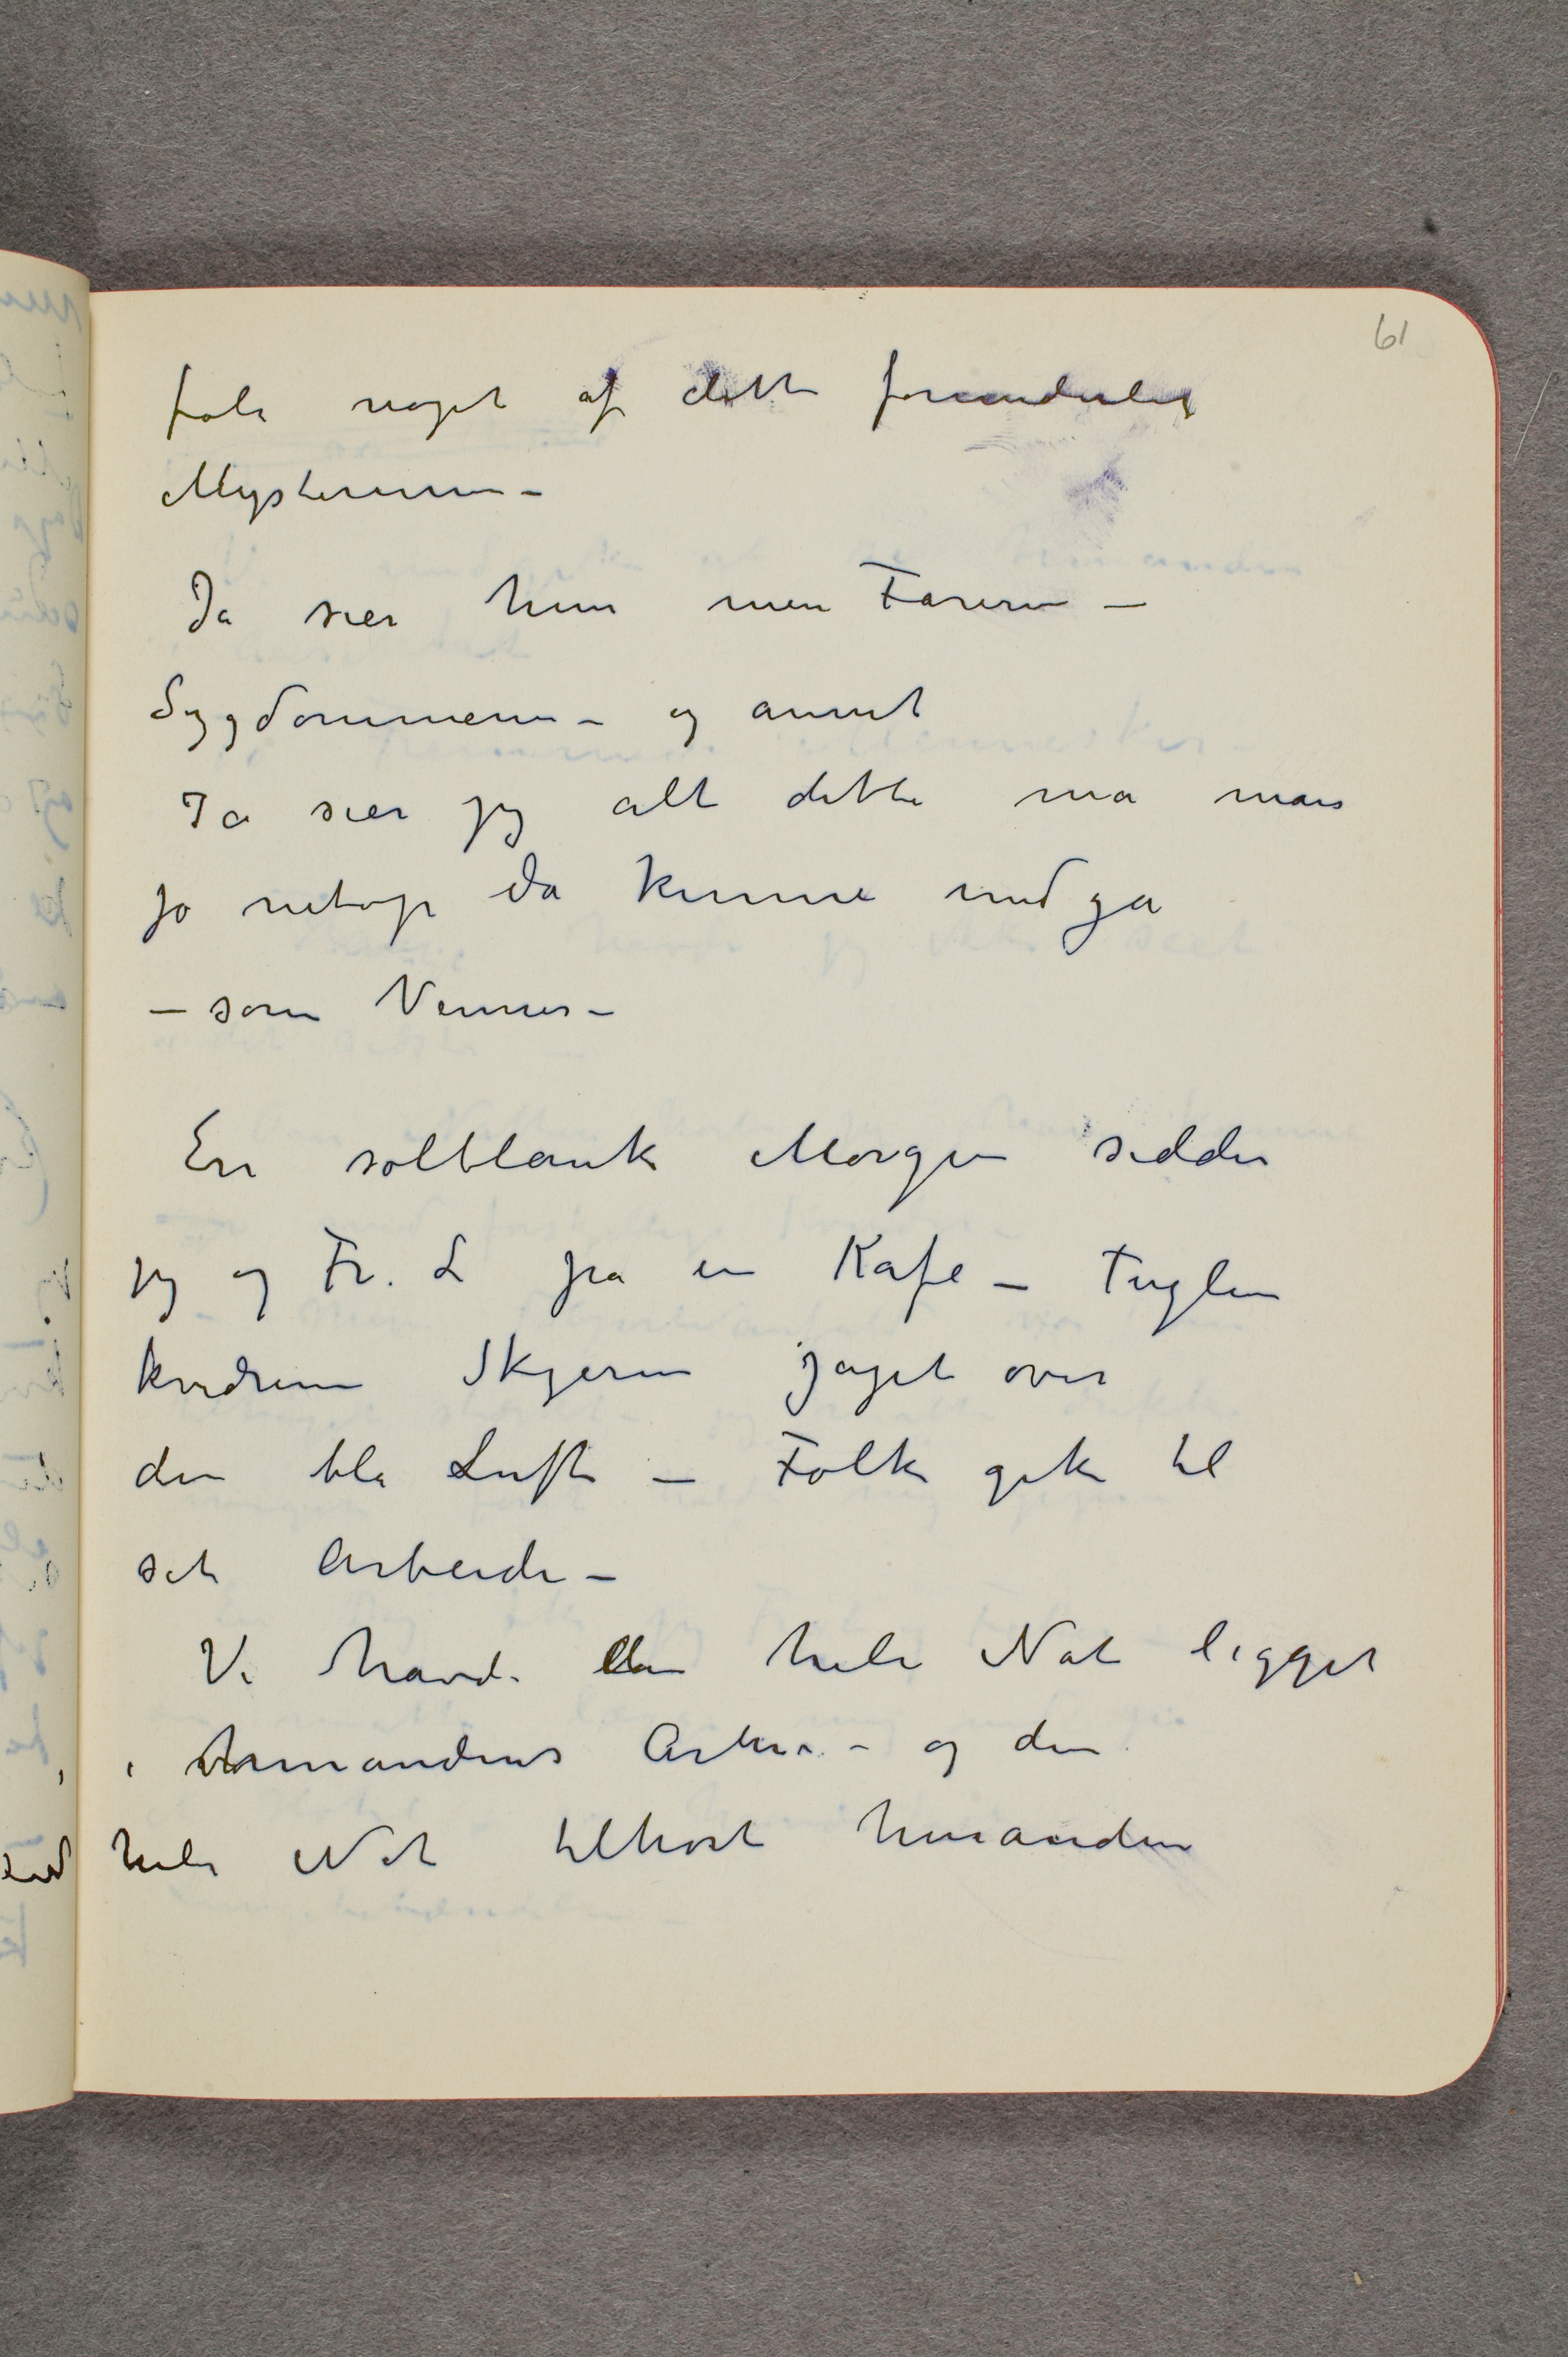 61
føle noget af dette forunderlig
Mysterium –
Ja sier hun men Faren –
Sygdommene – og annet
Ja sier jeg alt dette må man
jo netop da kunne undgå
– som Venner –
En solblank Morgen sidder
jeg og Fr. L på en Kafe – Fuglen
kvidrer Skyerne jaget over
den blå Luft – Folk gik til
sit Arbeide –
Vi havde den hele Nat ligget
i hinandens Arme – og den
hele Nat tilhørt hinanden